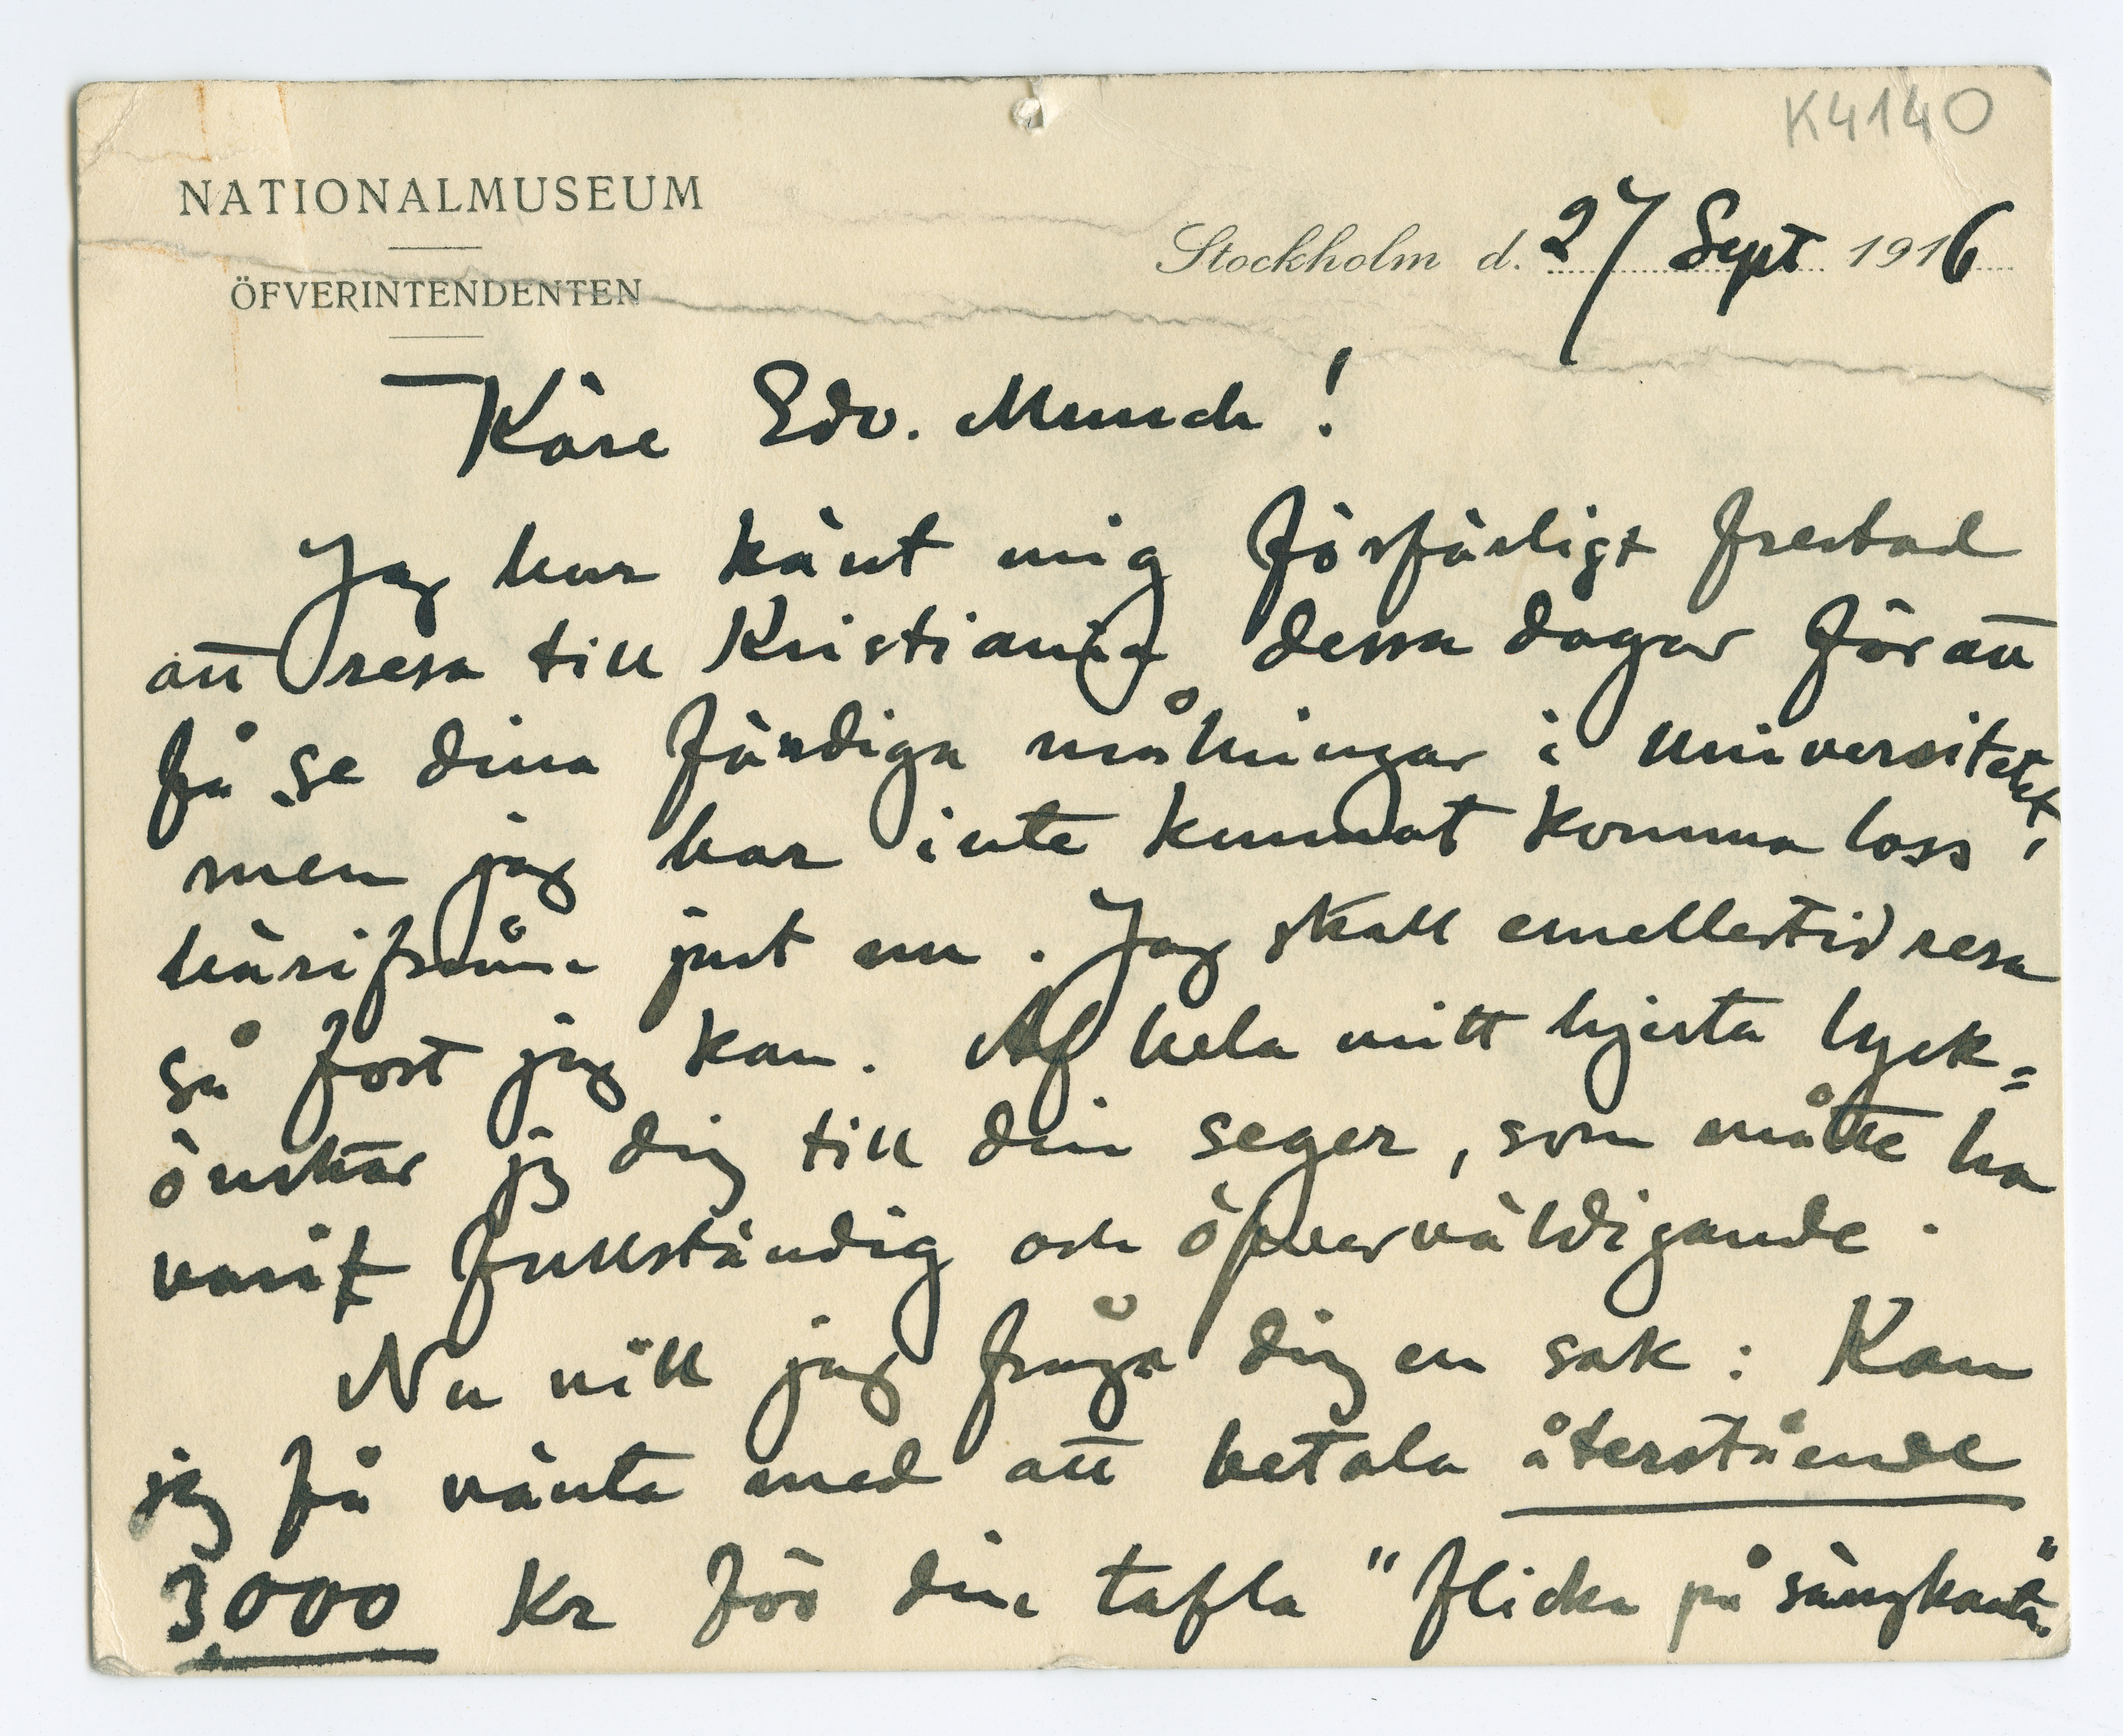 K4140
NATIONALMUSEUM
ÖFVERINTENDENTEN
Stockholm d. 27 Sept 1916
Käre Edv. Munch!
Jag har känt mig förfärligt frestad
att resa till Kristiania dessa dagar för att
få se dina färdiga målningar i universitetet,
men jag har inte kunnat komma loss
härifrån just nu. Jag skall emellertid resa
så fort jag kan. Af hela mitt hjerta lyck=
önskar jag dig till din seger, som måtte ha
varit fullständig och öfverväldigande.
Nu vill jag fråga dig en sak: Kan
jag få vänta med att betala återstående
3000 Kr för din tafla "flicka på sängkanten"